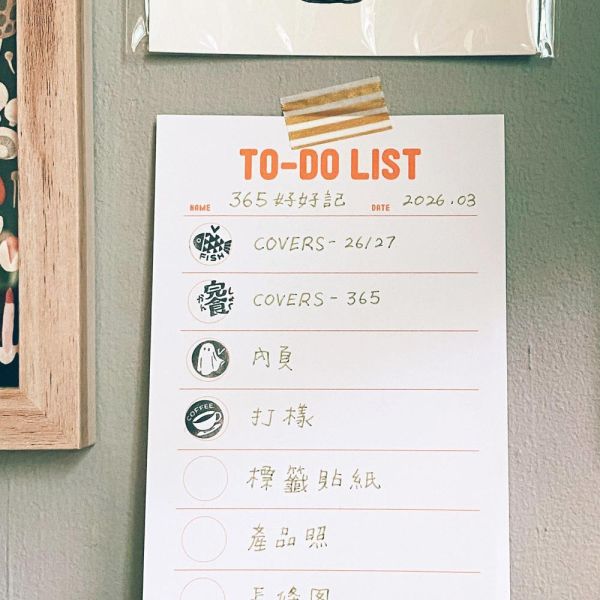 TO-DO LIST
NAME 365好好記 DATE 2026.03
FISH COVERS-26/27
完食 かん しょく COVERS-365
內頁
COFFEE 打樣
標籤貼紙
產品照
長條圖